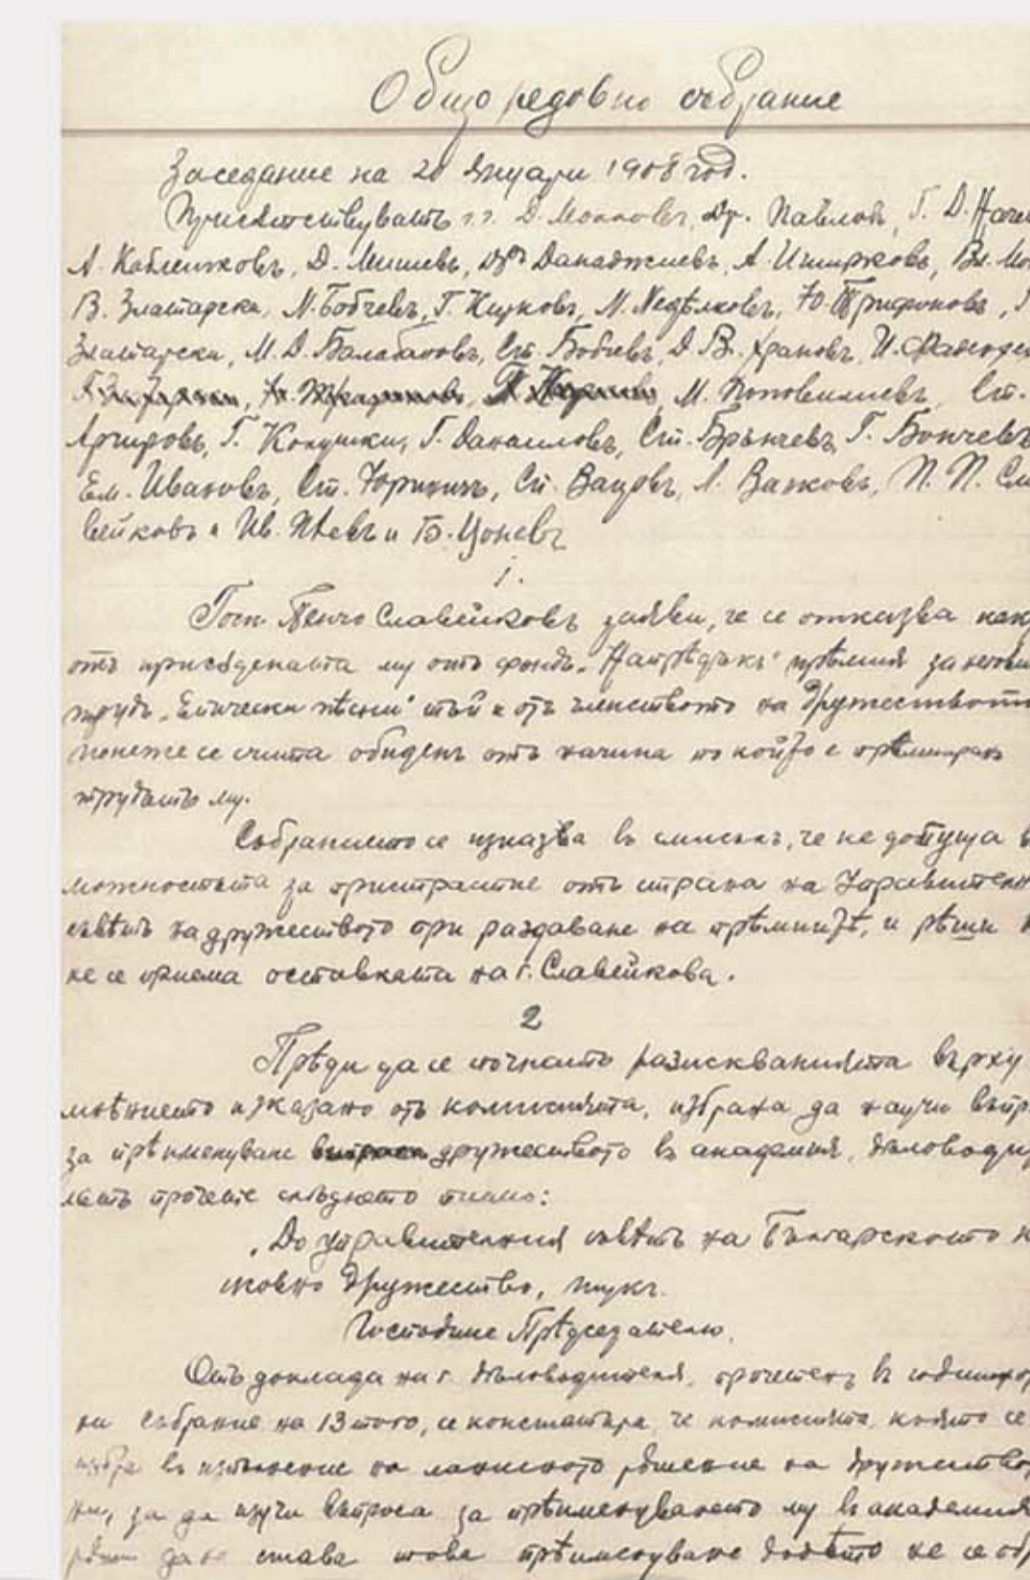 Общо редовно събрание
Заседание на 20 Януари 1908 год.
Присѫтствуватъ г.г. Д. Др. Павловъ, Г. Д. Наче
А. Кабленковъ, Д. Мишевъ, Д-ръ Данаджиевъ, А. Иширковъ, Вл. Мо
В. Златарски, И. Бобчевъ, Г. Кирковъ, М. Недѣлковъ, Ю. Трифоновъ,
Златарски, М. Д. Балабановъ, Ст. Бобчевъ, Д. В. Храновъ, И.
М. Поповилиевъ, Ст.
Аргировъ, Г. Данаиловъ, Ст. Брънчевъ, Г. Бончевъ
Ем. Ивановъ, Ст. Юриничъ, Сп. Вацовъ, А. Ванковъ, П. П. Сла
вейковъ и Ив. Пѣевъ и Б. Цоневъ
1.
Госп. Пенчо Славейковъ заяви, че се отказва как
отъ присѫдената му отъ фондъ „Напрѣдъкъ“ прѣмия за неговия
трудъ „Епически пѣсни“ тъй и отъ членството на Дружеството
понеже се счита обиденъ отъ начина по който е прѣмиранъ
трудътъ му.
Събранието се изказва въ смисъль, че не допуща в
можностьта за пристрастие отъ страна на Управителн
съвѣтъ на дружеството при раздаване на прѣмиитѣ, и рѣши
не се приема оставката на г. Славейкова.
2
Прѣди да се почнатъ разискванията върху
мнѣнието изказано отъ комисията, избрана да научи въпр
за прѣименуване дружеството въ академия, дѣловоди
лътъ прочете слѣдното писмо:
„До управителния съвѣтъ на Българското к
жовно Дружество, тукъ.
Господине Прѣдседателю,
Отъ доклада на г. дѣловодителя, прочетенъ въ
ни събрание на 13 того, се констатира, че комисията, която се
избра въ изпълнение на решение на дружество
ни, за да изучи въпроса за прѣименуването му въ академия
да не става това прѣименуване додѣто не се об